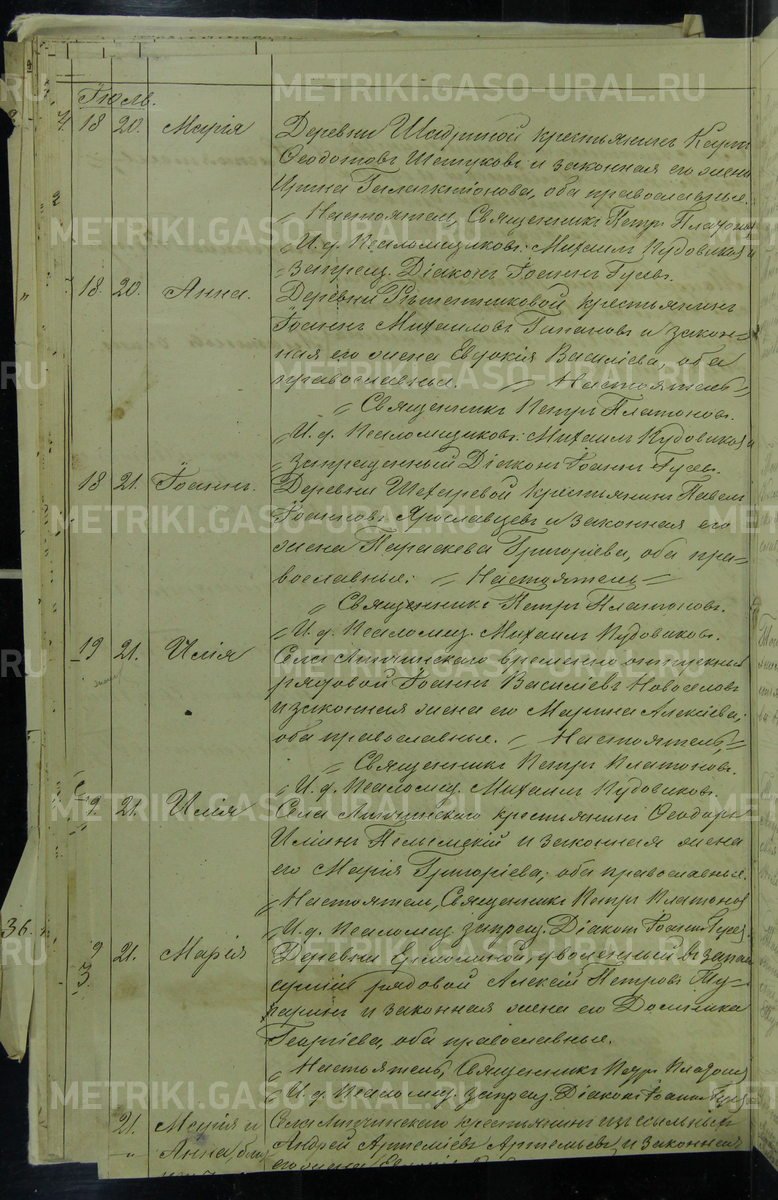 METRIKI.GASO-URAL.RU
Іюль.
18 20. Марія Деревни Шадриной крестьянинъ Карпъ
Ѳеодотовъ и законная его жена
Ирина Галактіонова, оба православные.
Настоятель, Священникъ Петръ Платоновъ
И. д. Псаломщиковъ: Михаилъ Кудовиковъ и
Запрещ. Діаконъ Іоаннъ Гусевъ.
18. 20. Анна. Деревни крестьянинъ
Іоаннъ Михаиловъ и закон-
ная его жена Евдокія Василіева, оба
православные. Настоятель
Священникъ Петръ Платоновъ.
И. д. Псаломщиковъ: Михаилъ Кудовиковъ и
Запрещенный Діаконъ Іоаннъ Гусевъ.
18 21. Іоаннъ. Деревни крестьянинъ Павелъ
Іоанновъ Ярославцевъ и законная его
жена Параскева Григоріева, оба пра-
вославные. Настоятель
Священникъ Петръ Платоновъ.
И. д. Псаломщ. Михаилъ Кудовиковъ.
19 21. Илія Села временно отпускной
рядовой Іоаннъ Василіевъ Новоселовъ
и законная жена его Марина Алексіева,
оба православные. Настоятель
Священникъ Петръ Платоновъ.
И. д. Псаломщ. Михаилъ Кудовиковъ.
9 21. Илія Села крестьянинъ Ѳеодоръ
Иліинъ и законная жена
его Марія Григоріева, оба православные.
Настоятель, Священникъ Петръ Платоновъ
И. д. Псаломщ. запрещ. Діаконъ Іоаннъ Гусев.
36.
9 21. Марія Деревни уволенный въ запас
арміи рядовой Алексій Петровъ
и законная жена его Домника
Георгіева, оба православные.
Настоятель, Священникъ Петръ Платонов
И. д. Псаломщ. запрещ. Діаконъ Іоаннъ Гусев
21. Марія и Села крестьянинъ изъ ссыльныхъ
" Анна (близ Андрей Артеміевъ Артемьевъ и законная
его жена